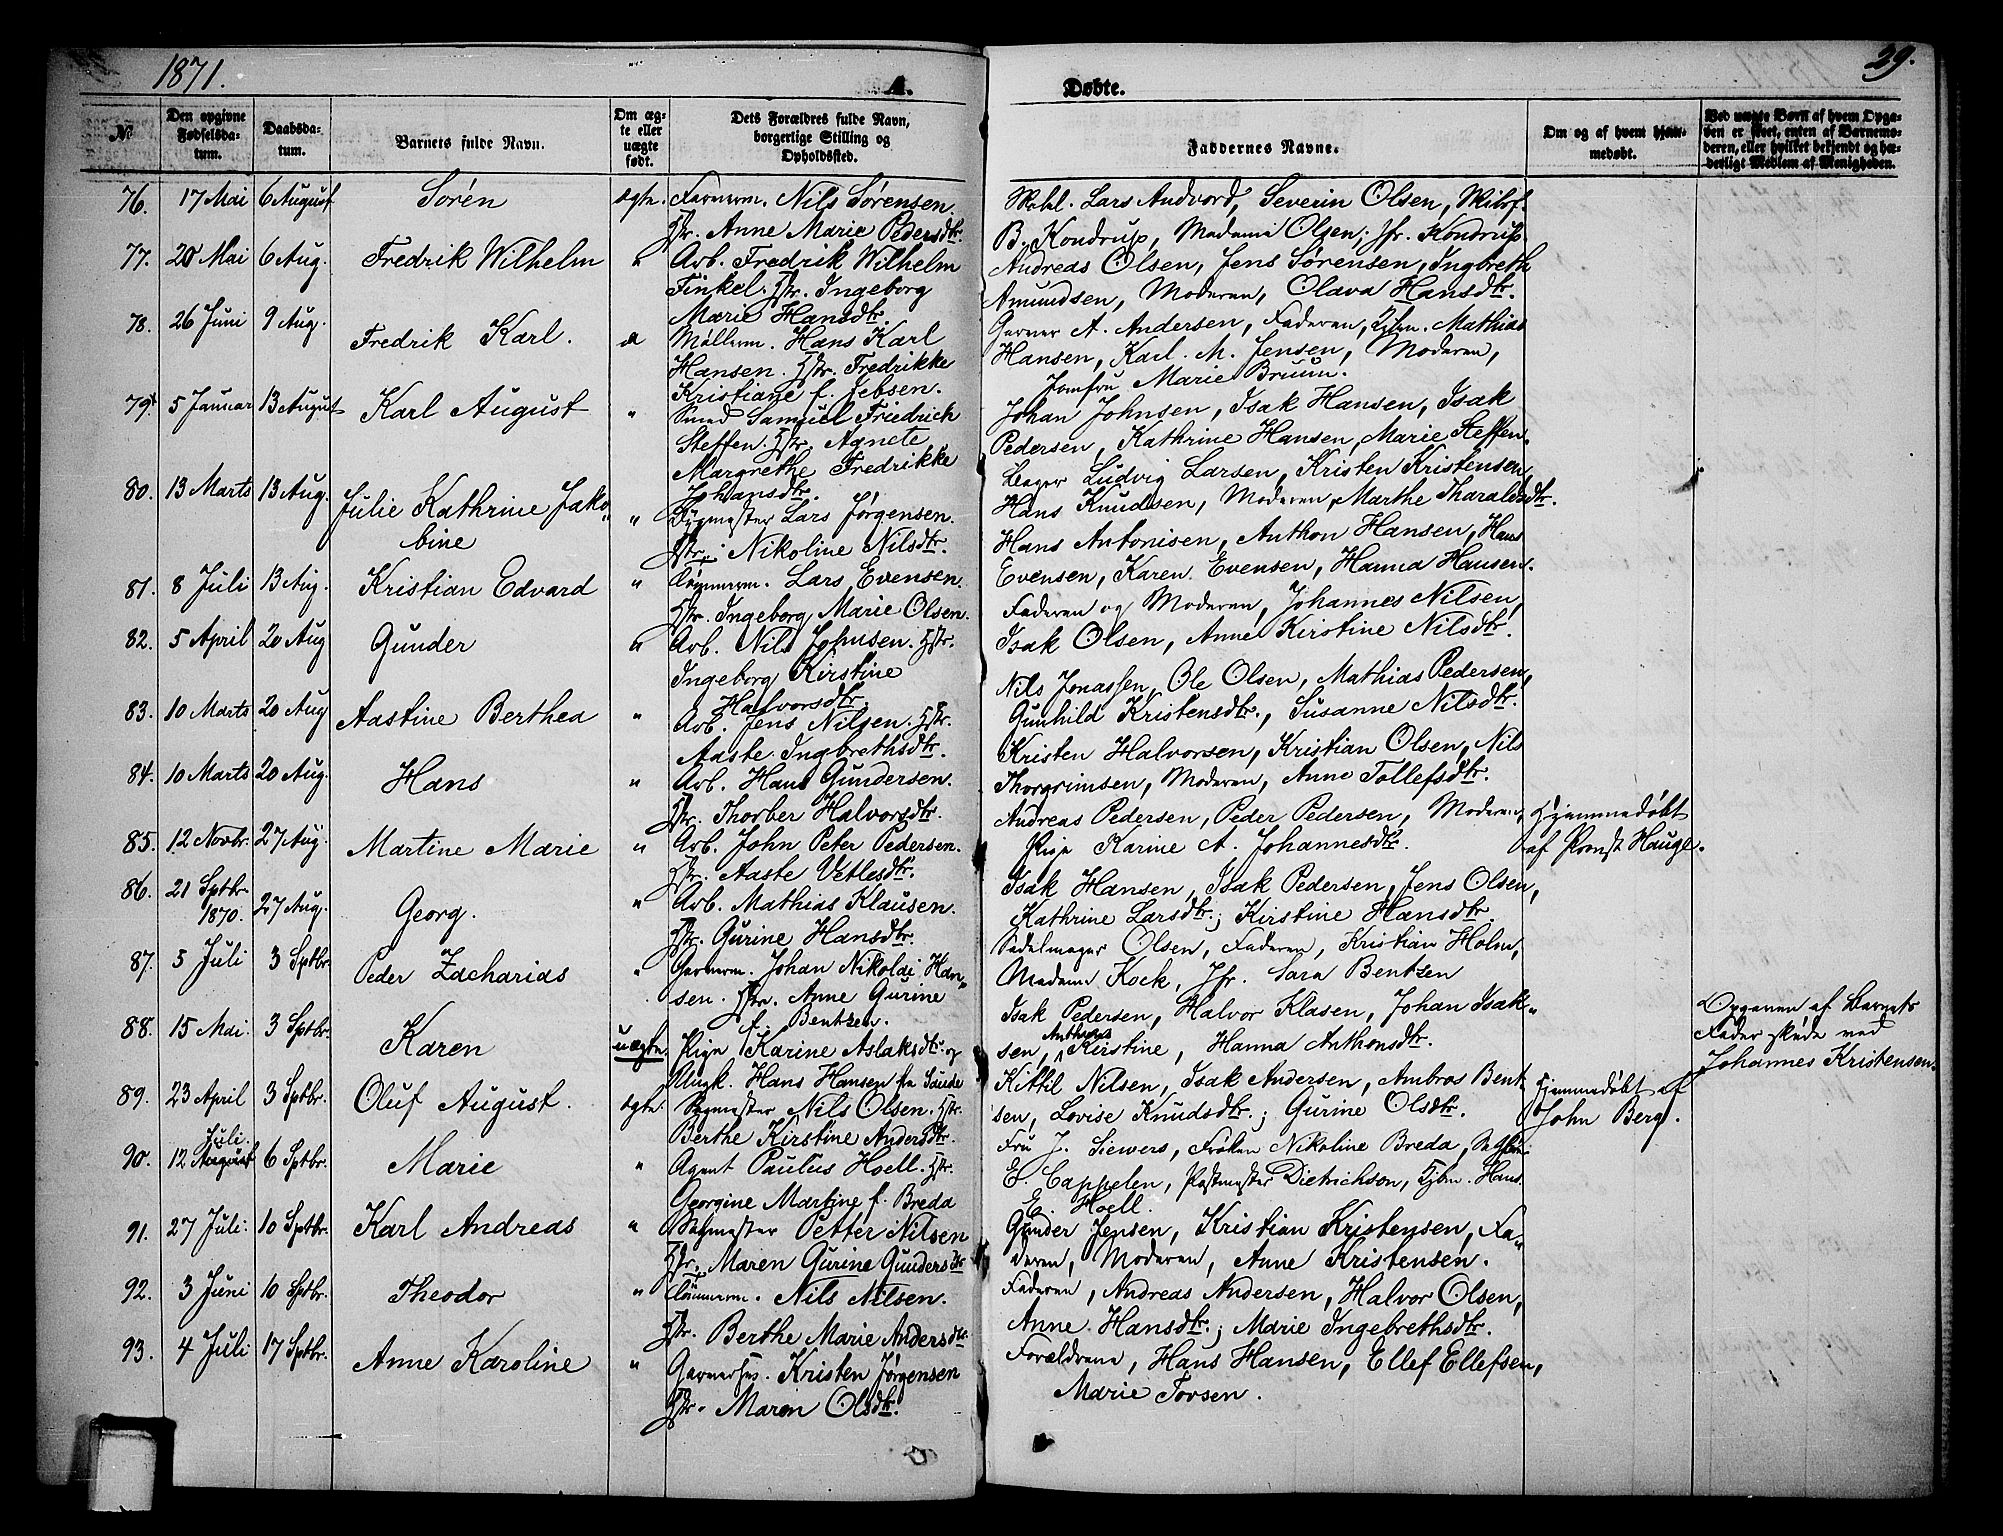 1871.
A.
Døbte.
29.
№
Den opgivne Fødselsdatum.
Daabsdatum.
Barnets fulde Navn.
Om ægte eller uægte født.
Dets Forældres fulde Navn, borgerlige Stilling og Opholdssted.
Faddernes Navne.
Om og af hvem hjemmedøbt.
Ved uægte Børn af hvem Opgaven er skeet, enten af Barnemoderen, eller hvilket bekjendt og hæderligt Medlem af Menigheden.
76. 17 Mai 6 August Sørén ægte. Farverm. Nils Sørensen
Hstr. Anne Marie Pedersdtr.
Lars Andvord, Severin Olsen,
B. Kondrup, Madame Olsen; Jfr. Kondrup
77. 20 Mai 6 Aug. Fredrik Wilhelm " Arb. Fredrik Wilhelm
Finkel. Hstr. Ingeborg
Marie Hansdtr.
Andreas Olsen, Jens Sørensen, Ingbreth
Amundsen, Moderen, Olava Hansdtr.
78. 26 Juni 9 Aug. Fredrik Karl. " Møllerm. Hans Karl
Hansen. Hstr. Fredrikke
Kristiane f. Jebsen.
Garver A. Andersen, Faderen, Kjbm. Mathias
Hansen, Karl. M. Jensen, Moderen,
Jomfru Marie Bruun.
79. 5 Januar 13 August Karl August " Smed Samuel Friedrich
Steffen. Hstr. Agnete
Margrethe Fredrikke
Johansdtr.
Johan Johnsen, Isak Hansen, Isak
Pedersen, Kathrine Hansen, Marie Steffen.
80. 13 Marts 13 Aug. Julie Kathrine Jako-
bine " Bygmester Lars Jørgensen.
Hstr. Nikoline Nilsdtr.
Bager Ludvig Larsen, Kristen Kristensen,
Hans Knudsen, Moderen, Marthe Tharaldsdtr.
81. 8 Juli 13 Aug. Kristian Edvard " Tømmerm. Lars Evensen.
Hstr. Ingeborg Marie Olsen.
Hans Antonisen, Anthon Hansen, Hans
Evensen, Karen Evensen, Hanna Hansen.
82. 5 April 20 Aug Gunder " Arb. Nils Johnsen. Hstr.
Ingeborg Kirstine
Halvorsdtr.
Faderen og Moderen, Johannes Nilsen,
Isak Olsen, Anne Kirstine Nilsdtr.
83. 10 Marts 20 Aug Aastine Berthea " Arb. Jens Nilsen. Hstr.
Aaste Ingbrethsdtr.
Nils Jonassen, Ole Olsen, Mathias Pedersen,
Gunhild Kristensdtr., Susanne Nilsdtr.
84. 10 Marts 20 Aug. Hans " Arb. Hans Gundersen.
Hstr. Thorber Halvorsdtr.
Kristen Halvorsen, Kristian Olsen, Nils
Thorgrimsen, Moderen, Anne Tollefsdtr.
85. 12 Novbr. 27 Aug. Martine Marie " Arb. John Peter Pedersen.
Hstr. Aaste Vetlesdtr.
Andreas Pedersen, Peder Pedersen, Moderen,
Pige Karine A. Johannesdtr.
Hjemmedøbt
af Provst Hauge.
86. 21 Sptbr. 1870. 27 Aug. Georg. " Arb. Mathias Klausen.
Hstr. Gurine Hansdtr.
Isak Hansen, Isak Pedersen, Jens Olsen,
Kathrine Larsdtr.; Kirstine Hansdtr.
87. 5 Juli 3 Sptbr. Peder Zacharias " Garverm. Johan Nikolai Han-
sen. Hstr. Anne Gurine
f. Bentzen.
Sadelmager Olsen, Faderen, Kristian Holm,
Madame Kock, Jfr. Sara Bentzen
88. 15 Mai. 3 Sptbr. Karen uægte. Pige Karine Aslaksdtr. og
Ungk. Hans Hansen fra Saude
Isak Pedersen, Halvor Klasen, Johan Isak-
sen, Kirstine, Hanna Anthonsdtr.
Opgaven af Barnets
Fader skede ved
Johannes Kristensen.
89. 23 April 3 Sptbr. Oluf August. ægte. Bygmester Nils Olsen. Hstr.
Berthe Kirstine Andersdtr.
Kittil Nilsen, Isak Andersen, Ambros Bent-
sen, Lovise Knudsdtr.; Gurine Olsdtr.
Hjemmedøbt af
John Berg.
90. 12 Juli August 6 Sptbr. Marie " Agent Paulus Hoell. Hstr.
Georgine Martine f. Breda
Fru J. Siewers, Frøken Nikoline Breda,
E. Cappelen, Postmester Dietrichson, Kjbm. Hans
E. Hoell.
91. 27 Juli. 10 Sptbr. Karl Andreas " Bygmester Petter Nilsen
Hstr. Maren Gurine Gundersdtr
Gunder Jensen, Kristian Kristensen, Fa-
deren, Moderen, Anne Kristensen.
92. 3 Juni 10 Sptbr. Theodor " Tømmerm. Nils Nilsen.
Hstr. Berthe Marie Andersdtr.
Faderen, Andreas Andersen, Halvor Olsen,
Anne Hansdtr.; Marie Ingebrethsdtr.
93. 4 Juli 17 Sptbr. Anne Karoline " Garversv. Kristen Jørgensen
Hstr. Maren Olsdtr.
Forældrene, Hans Hansen, Ellef Ellefsen,
Marie Torsen.